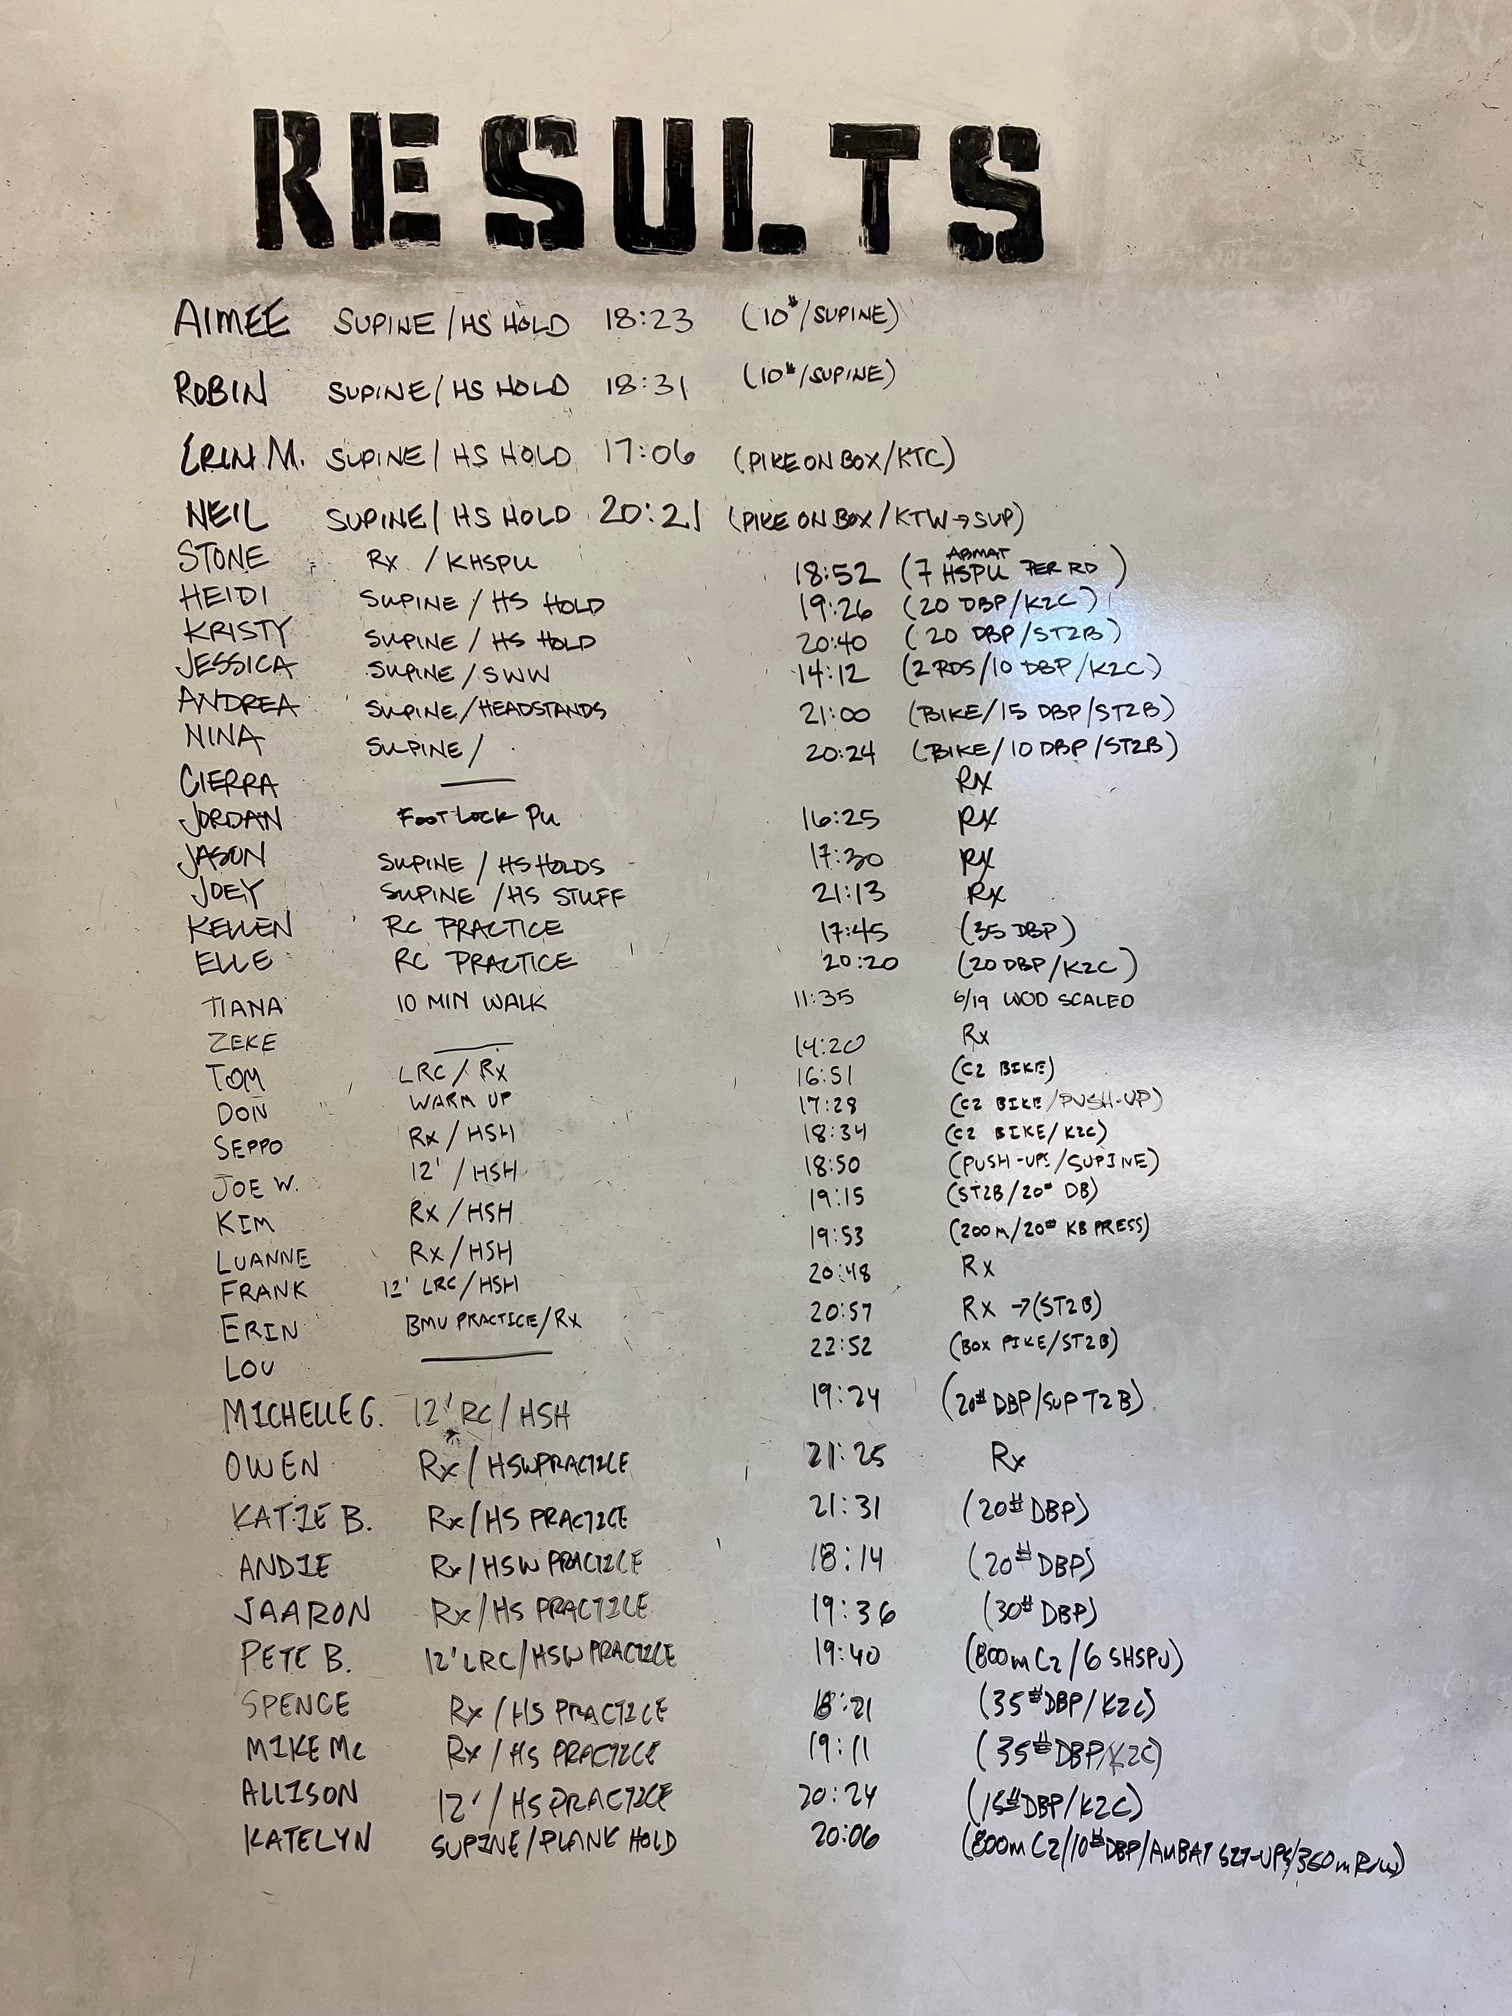 RESULTS
AIMEE SUPINE/HS HOLD 18:23 (10#/SUPINE)
ROBIN SUPINE/HS HOLD 18:31 (10#/SUPINE)
ERIN M. SUPINE/HS HOLD 17:06 (PIKE ON BOX/KTC)
NEIL SUPINE/HS HOLD 20:21 (PIKE ON BOX/KTW→SUP)
STONE Rx / KHSPU 18:52 (7 ABMAT HSPU PER RD)
HEIDI SUPINE / HS HOLD 19:26 (20 DBP/K2C)
KRISTY SUPINE / HS HOLD 20:40 (20 DBP/ST2B)
JESSICA SUPINE / SWW 14:12 (2 RDS/10 DBP/K2C)
ANDREA SUPINE/HEADSTANDS 21:00 (BIKE/15 DBP/ST2B)
NINA SUPINE/ 20:24 (BIKE/10 DBP/ST2B)
CIERRA — RX
JORDAN FOOT LOCK PU 16:25 RX
JASON SUPINE / HS HOLDS 17:30 RX
JOEY SUPINE / HS STUFF 21:13 Rx
KELLEN RC PRACTICE 17:45 (35 DBP)
ELLE RC PRACTICE 20:20 (20 DBP/K2C)
TIANA 10 MIN WALK 11:35 6/19 WOD SCALED
ZEKE — 14:20 Rx
TOM LRC / Rx 16:51 (C2 BIKE)
DON WARM UP 17:28 (C2 BIKE/PUSH-UP)
SEPPO Rx / HSH 18:34 (C2 BIKE/K2C)
JOE W. 12' / HSH 18:50 (PUSH-UPS/SUPINE)
KIM Rx / HSH 19:15 (ST2B/20# DB)
LUANNE Rx / HSH 19:53 (200M/20# KB PRESS)
FRANK 12' LRC/HSH 20:48 Rx
ERIN BMU PRACTICE/Rx 20:57 Rx →(ST2B)
LOU — 22:52 (BOX PIKE/ST2B)
MICHELLE G. 12' RC/HSH 19:24 (20# DBP/SUP T2B)
OWEN Rx/HSW PRACTICE 21:25 Rx
KATIE B. Rx/HS PRACTICE 21:31 (20# DBP)
ANDIE Rx/HSW PRACTICE 18:14 (20# DBP)
JAARON Rx/HS PRACTICE 19:36 (30# DBP)
PETE B. 12' LRC/HSW PRACTICE 19:40 (800m C2/6 SHSPU)
SPENCE Rx/HS PRACTICE 18:21 (35# DBP/K2C)
MIKE Mc Rx/HS PRACTICE 19:11 (35# DBP/K2C)
ALLISON 12'/HS PRACTICE 20:24 (15# DBP/K2C)
KATELYN SUPINE/PLANK HOLD 20:06 (800m C2/10# DBP/AMBAT SIT-UPS/350m Row)